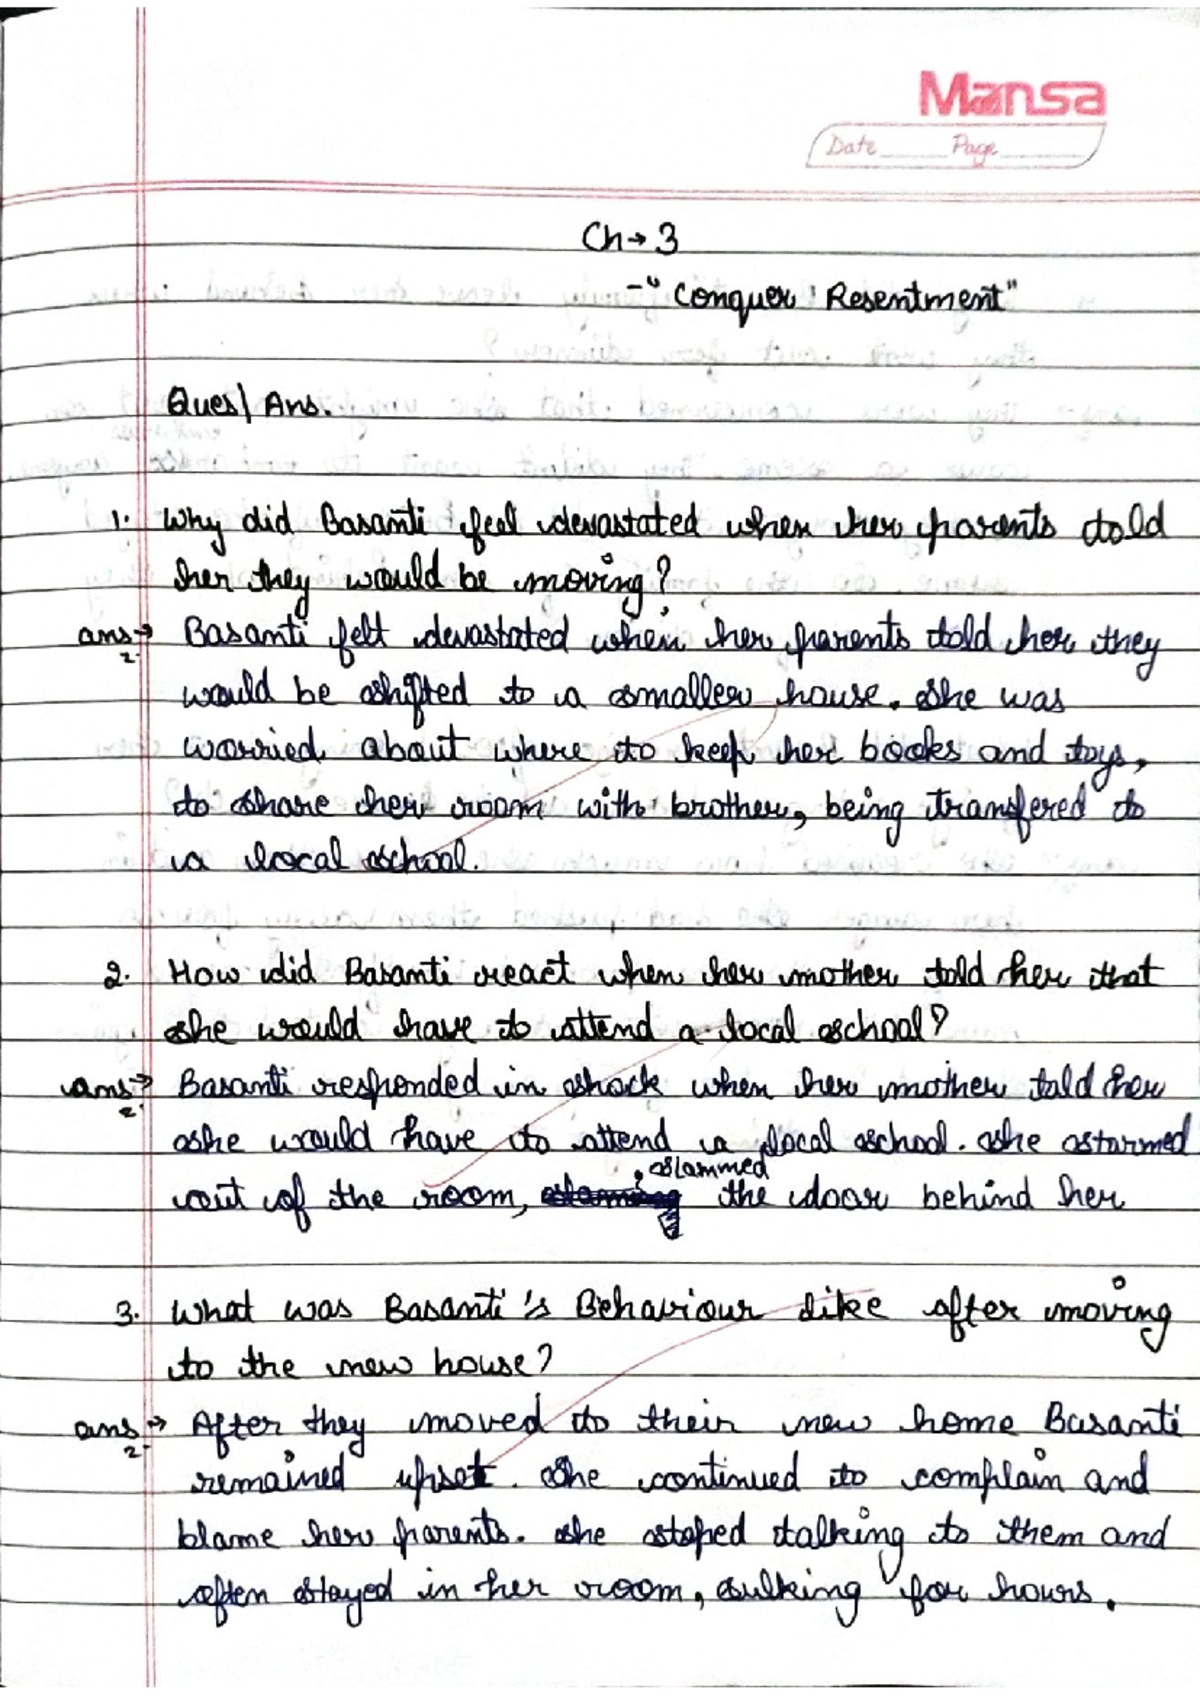 Mansa
Date Page
Ch→3
-"Conquer Resentment"
Ques/Ans.
1. Why did Basanti feel devastated when her parents told
her they would be moving?
ans→ Basanti felt devastated when her parents told her they
would be shifted to a smaller house. She was
worried about where to keep her books and toys,
to share her room with brother, being transfered to
a local school.
2. How did Basanti react when her mother told her that
she would have to attend a local school?
ans→ Basanti responded in shock when her mother told her
she would have to attend a local school. she stormed
out of the room, slammed the door behind her
3. What was Basanti's Behaviour like after moving
to the new house?
ans→ After they moved to their new home Basanti
remained upset. She continued to complain and
blame her parents. she stoped talking to them and
often stayed in her room, sulking for hours.